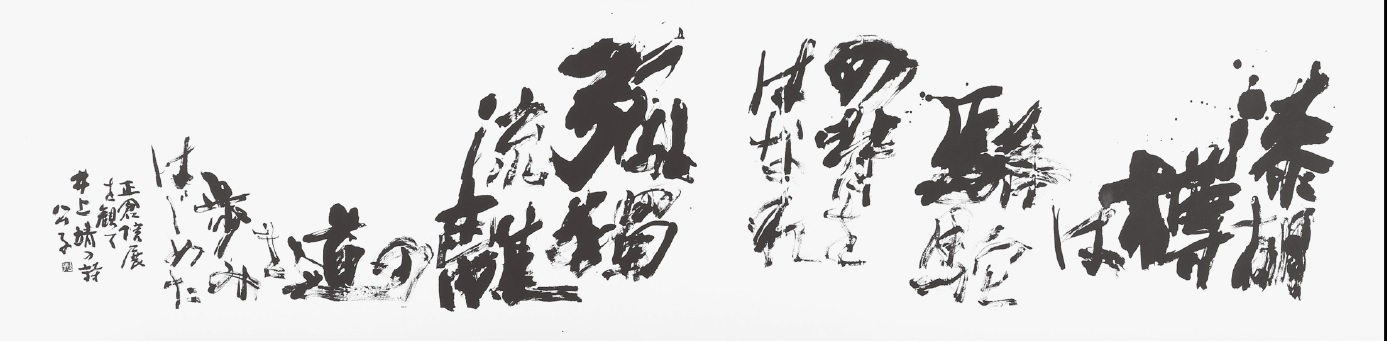 漆胡
樽は
駱駝
の背を
はなれ
孤獨
流離
の
道
を
歩み
はじめた
正倉院展
を観て
井上靖の詩
公子